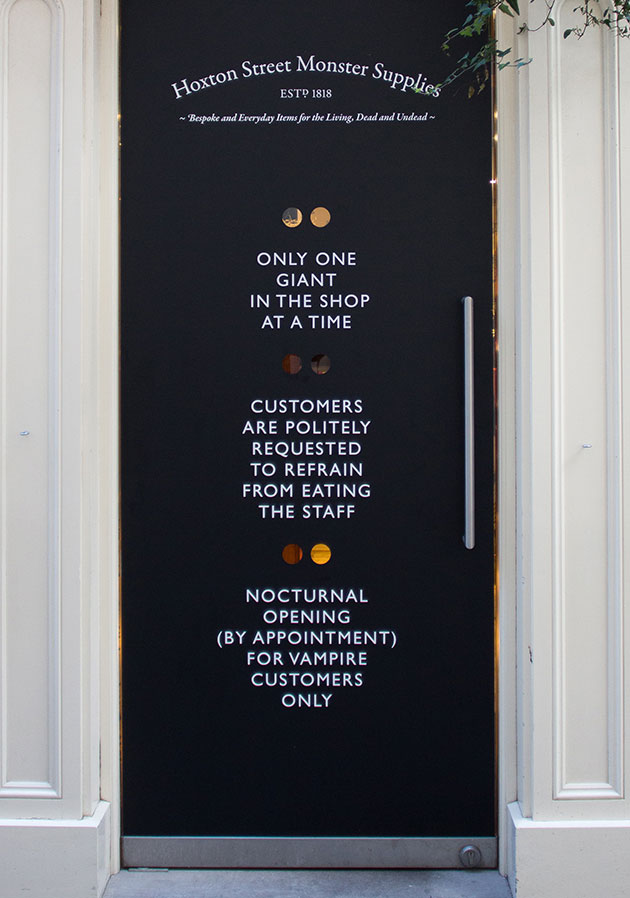 Hoxton Street Monster Supplies
ESTD 1818
~ Bespoke and Everyday Items for the Living, Dead and Undead ~
ONLY ONE
GIANT
IN THE SHOP
AT A TIME
CUSTOMERS
ARE POLITELY
REQUESTED
TO REFRAIN
FROM EATING
THE STAFF
NOCTURNAL
OPENING
(BY APPOINTMENT)
FOR VAMPIRE
CUSTOMERS
ONLY